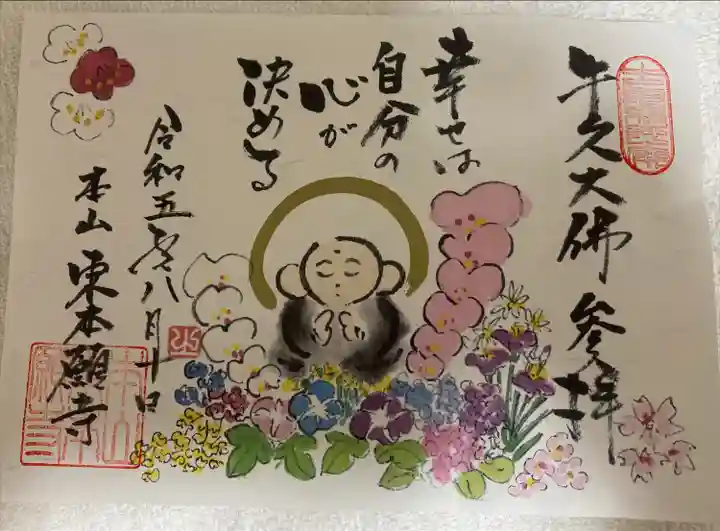 牛久大佛参拝
幸せは
自分の
心が
決める
令和五年八月十日
本山東本願寺